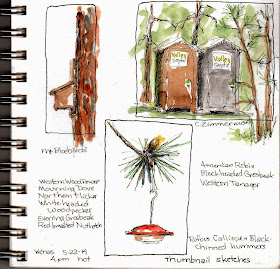 Valley
Septic
Valley
Septic
C. Zimmerman
American Robin
Blackheaded Grosbeak
Western Tanager
Western Wood Pewee
Mourning Dove
Northern Flicker
White-headed
Woodpecker
Evening Grosbeak
Red Breasted Nuthatch
Wenas 5-22-14
4 pm hot
Rufous Calliope & Black-
Chinned hummers
Thumbnail sketches